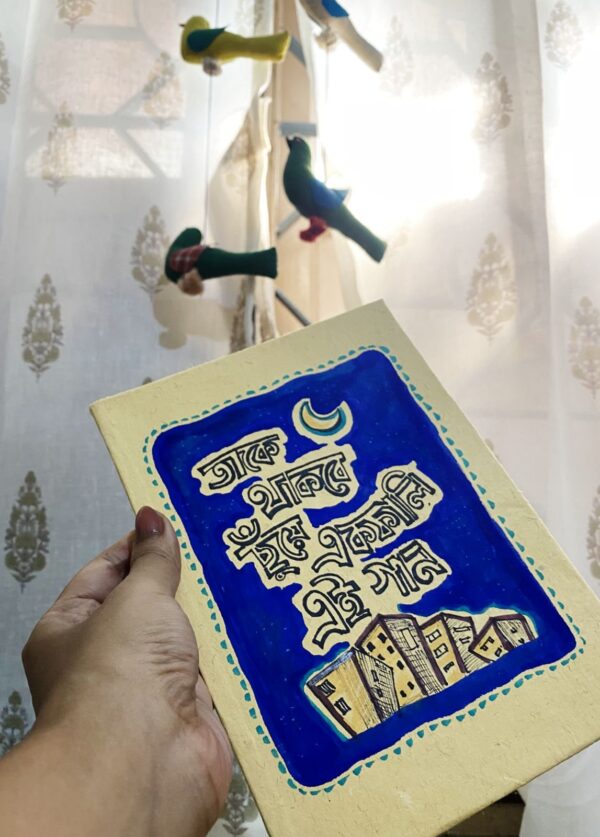 তাকে
থাকবে
ছুঁয়ে একফালি
এই গান